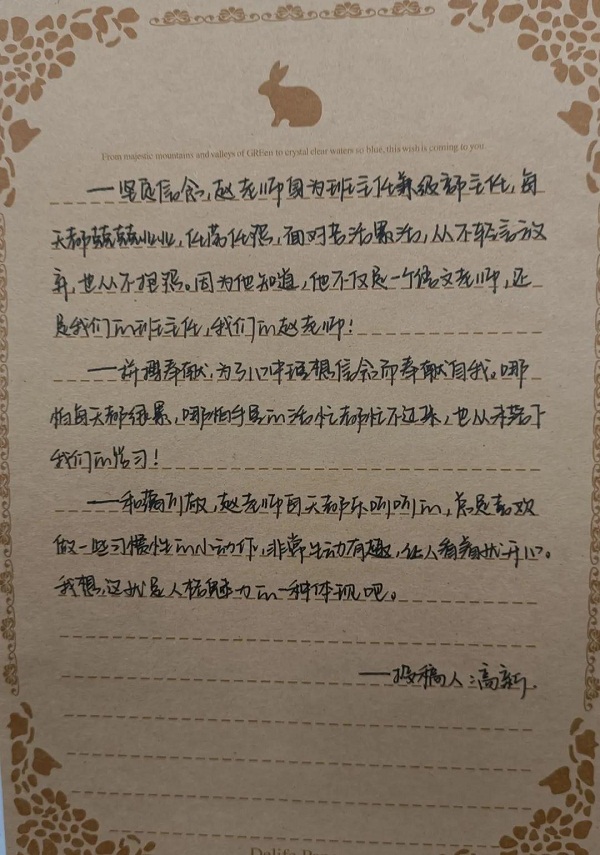 From majestic mountains and valleys of GREen to crystal clear waters so blue, this wish is coming to you
——坚定信念,赵老师身为班主任兼级部主任,每
天都兢兢业业,任劳任怨,面对苦活累活,从不轻言放
弃,也从不抱怨。因为他知道,他不仅是一个语文老师,还
是我们的班主任,我们的赵老师!
——拼搏奉献,为了心中理想信念而奉献自我。哪
怕每天都很累,哪怕手里的活忙都忙不过来,也从未落下
我们的学习!
——和蔼可敬,赵老师每天都乐呵呵的,总是喜欢
做一些习惯性的小动作,非常生动有趣,让人看着就开心。
我想,这就是人格魅力的一种体现吧。
——投稿人:高新